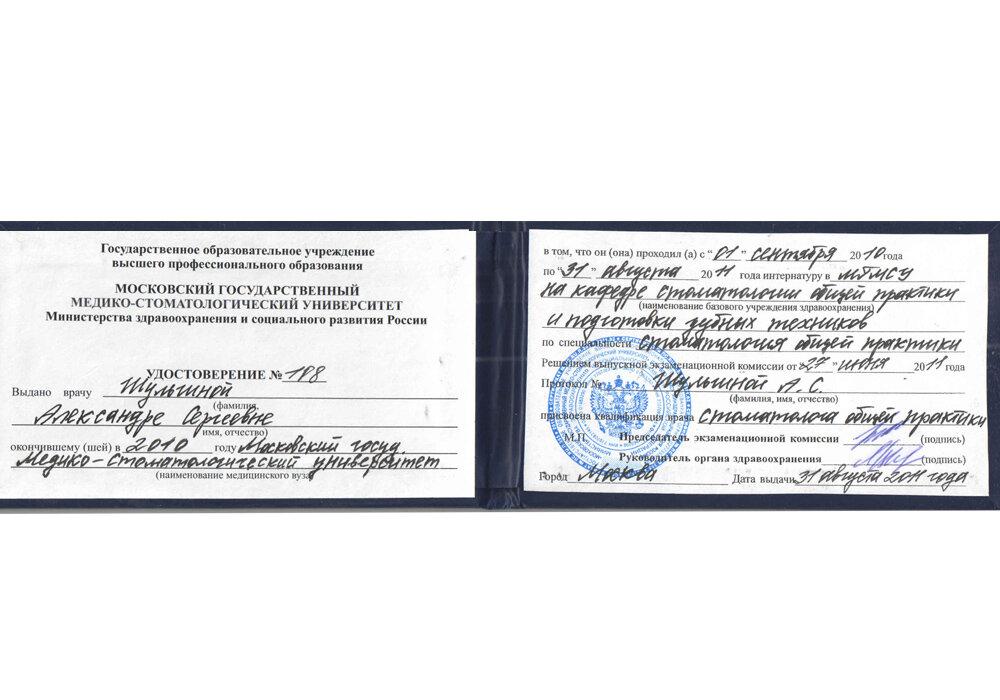 Государственное образовательное учреждение
высшего профессионального образования
МОСКОВСКИЙ ГОСУДАРСТВЕННЫЙ
МЕДИКО-СТОМАТОЛОГИЧЕСКИЙ УНИВЕРСИТЕТ
Министерства здравоохранения и социального развития России
УДОСТОВЕРЕНИЕ № 188
Выдано врачу Шульгиной
(фамилия,
Александре Сергеевне
имя, отчество)
окончившему (шей) в 2010 году Московский госуд.
Медико-стоматологический университет
(наименование медицинского вуза)
в том, что он (она) проходил (а) с "01" сентября 2010 года
по "31" августа 2011 года интернатуру в МГМСУ
на кафедре стоматологии общей практики
(наименование базового учреждения здравоохранения)
и подготовки зубных техников
по специальности стоматология общей практики
Решением выпускной экзаменационной комиссии от 27 июня 2011 года
Протокол № Шульгиной А. С.
(фамилия, имя, отчество)
присвоена квалификация врача стоматолога общей практики
М.П. Председатель экзаменационной комиссии (подпись)
Руководитель органа здравоохранения (подпись)
Город Москва Дата выдачи 31 августа 2011 года